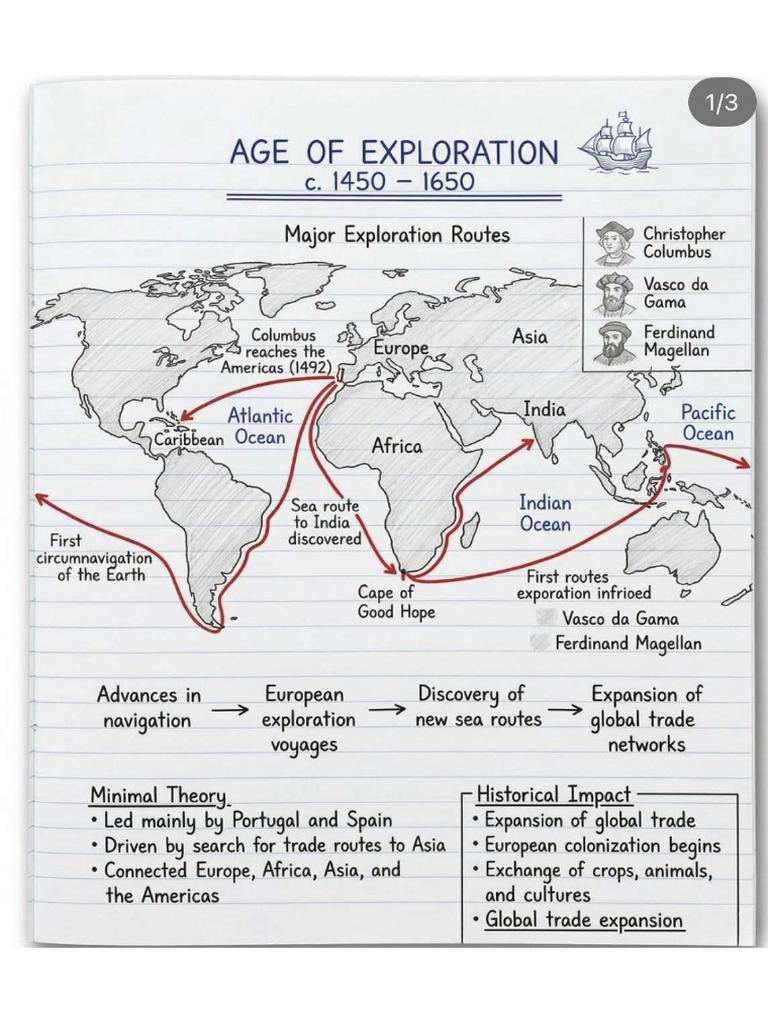 1/3
AGE OF EXPLORATION
c. 1450 – 1650
Major Exploration Routes
Christopher
Columbus
Vasco da
Gama
Ferdinand
Magellan
Columbus
reaches the
Americas (1492)
Europe
Asia
Atlantic
Ocean
Caribbean
Africa
India
Pacific
Ocean
Sea route
to India
discovered
Indian
Ocean
First
circumnavigation
of the Earth
Cape of
Good Hope
First routes
exporation infrioed
Vasco da Gama
Ferdinand Magellan
Advances in
navigation
European
exploration
voyages
Discovery of
new sea routes
Expansion of
global trade
networks
Minimal Theory
• Led mainly by Portugal and Spain
• Driven by search for trade routes to Asia
• Connected Europe, Africa, Asia, and
the Americas
Historical Impact
• Expansion of global trade
• European colonization begins
• Exchange of crops, animals,
and cultures
• Global trade expansion